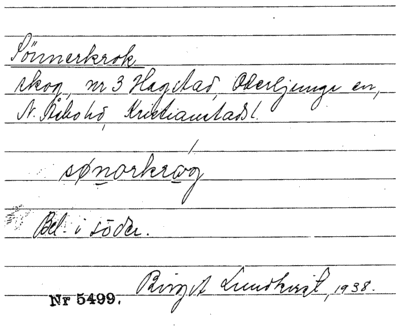 Sönnerkrok
skog, nr 3 Hagstad, Oderljunga sn,
N. Åsbohd, Kristianstads l.
sønorkrog
Bel. i söder.
Birgit Lundkvist, 1938.
Nr 5499.